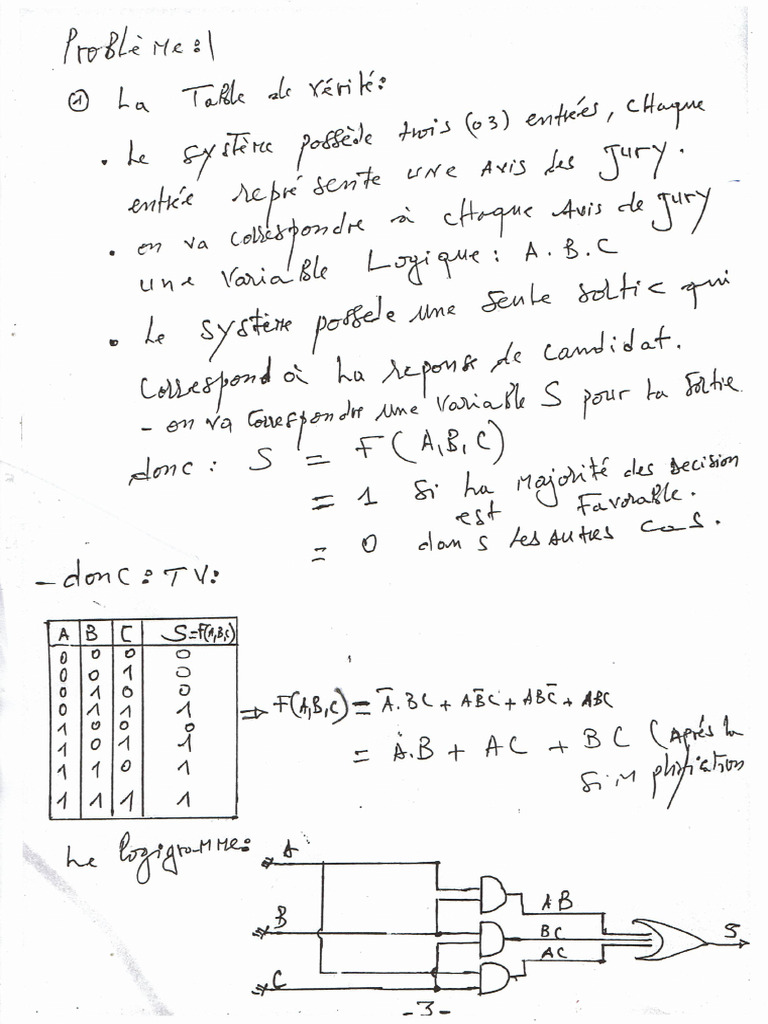 Problème: 1
① La Table de vérité:
• Le système possède trois (03) entrées, chaque
entrée représente une Avis des Jury.
• on va correspondre à chaque Avis de Jury
une variable Logique: A.B.C
• Le système possede une seule sortie qui
correspond à La reponse de candidat.
- on va correspondre une variable S pour La sortie
donc: S = F(A,B,C)
= 1 Si La Majorité des decision
est Favorable.
= 0 dans Les autres cas.
- donc: TV:
A B C S=F(A,B,C)
0 0 0 0
0 0 1 0
0 1 0 0
0 1 1 1
1 0 0 0
1 0 1 1
1 1 0 1
1 1 1 1
⇒ F(A,B,C) = A̅.BC + AB̅C + ABC̅ + ABC
= A.B + AC + BC (Après La
Simplification
Le logigramme:
A
B
C
AB
BC
AC
S
-3-